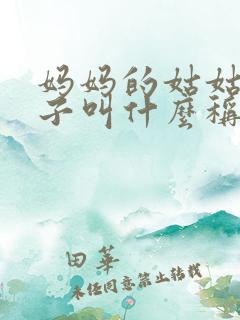 妈妈的姑姑
子叫什麼稱
田華
未经同意禁止转载